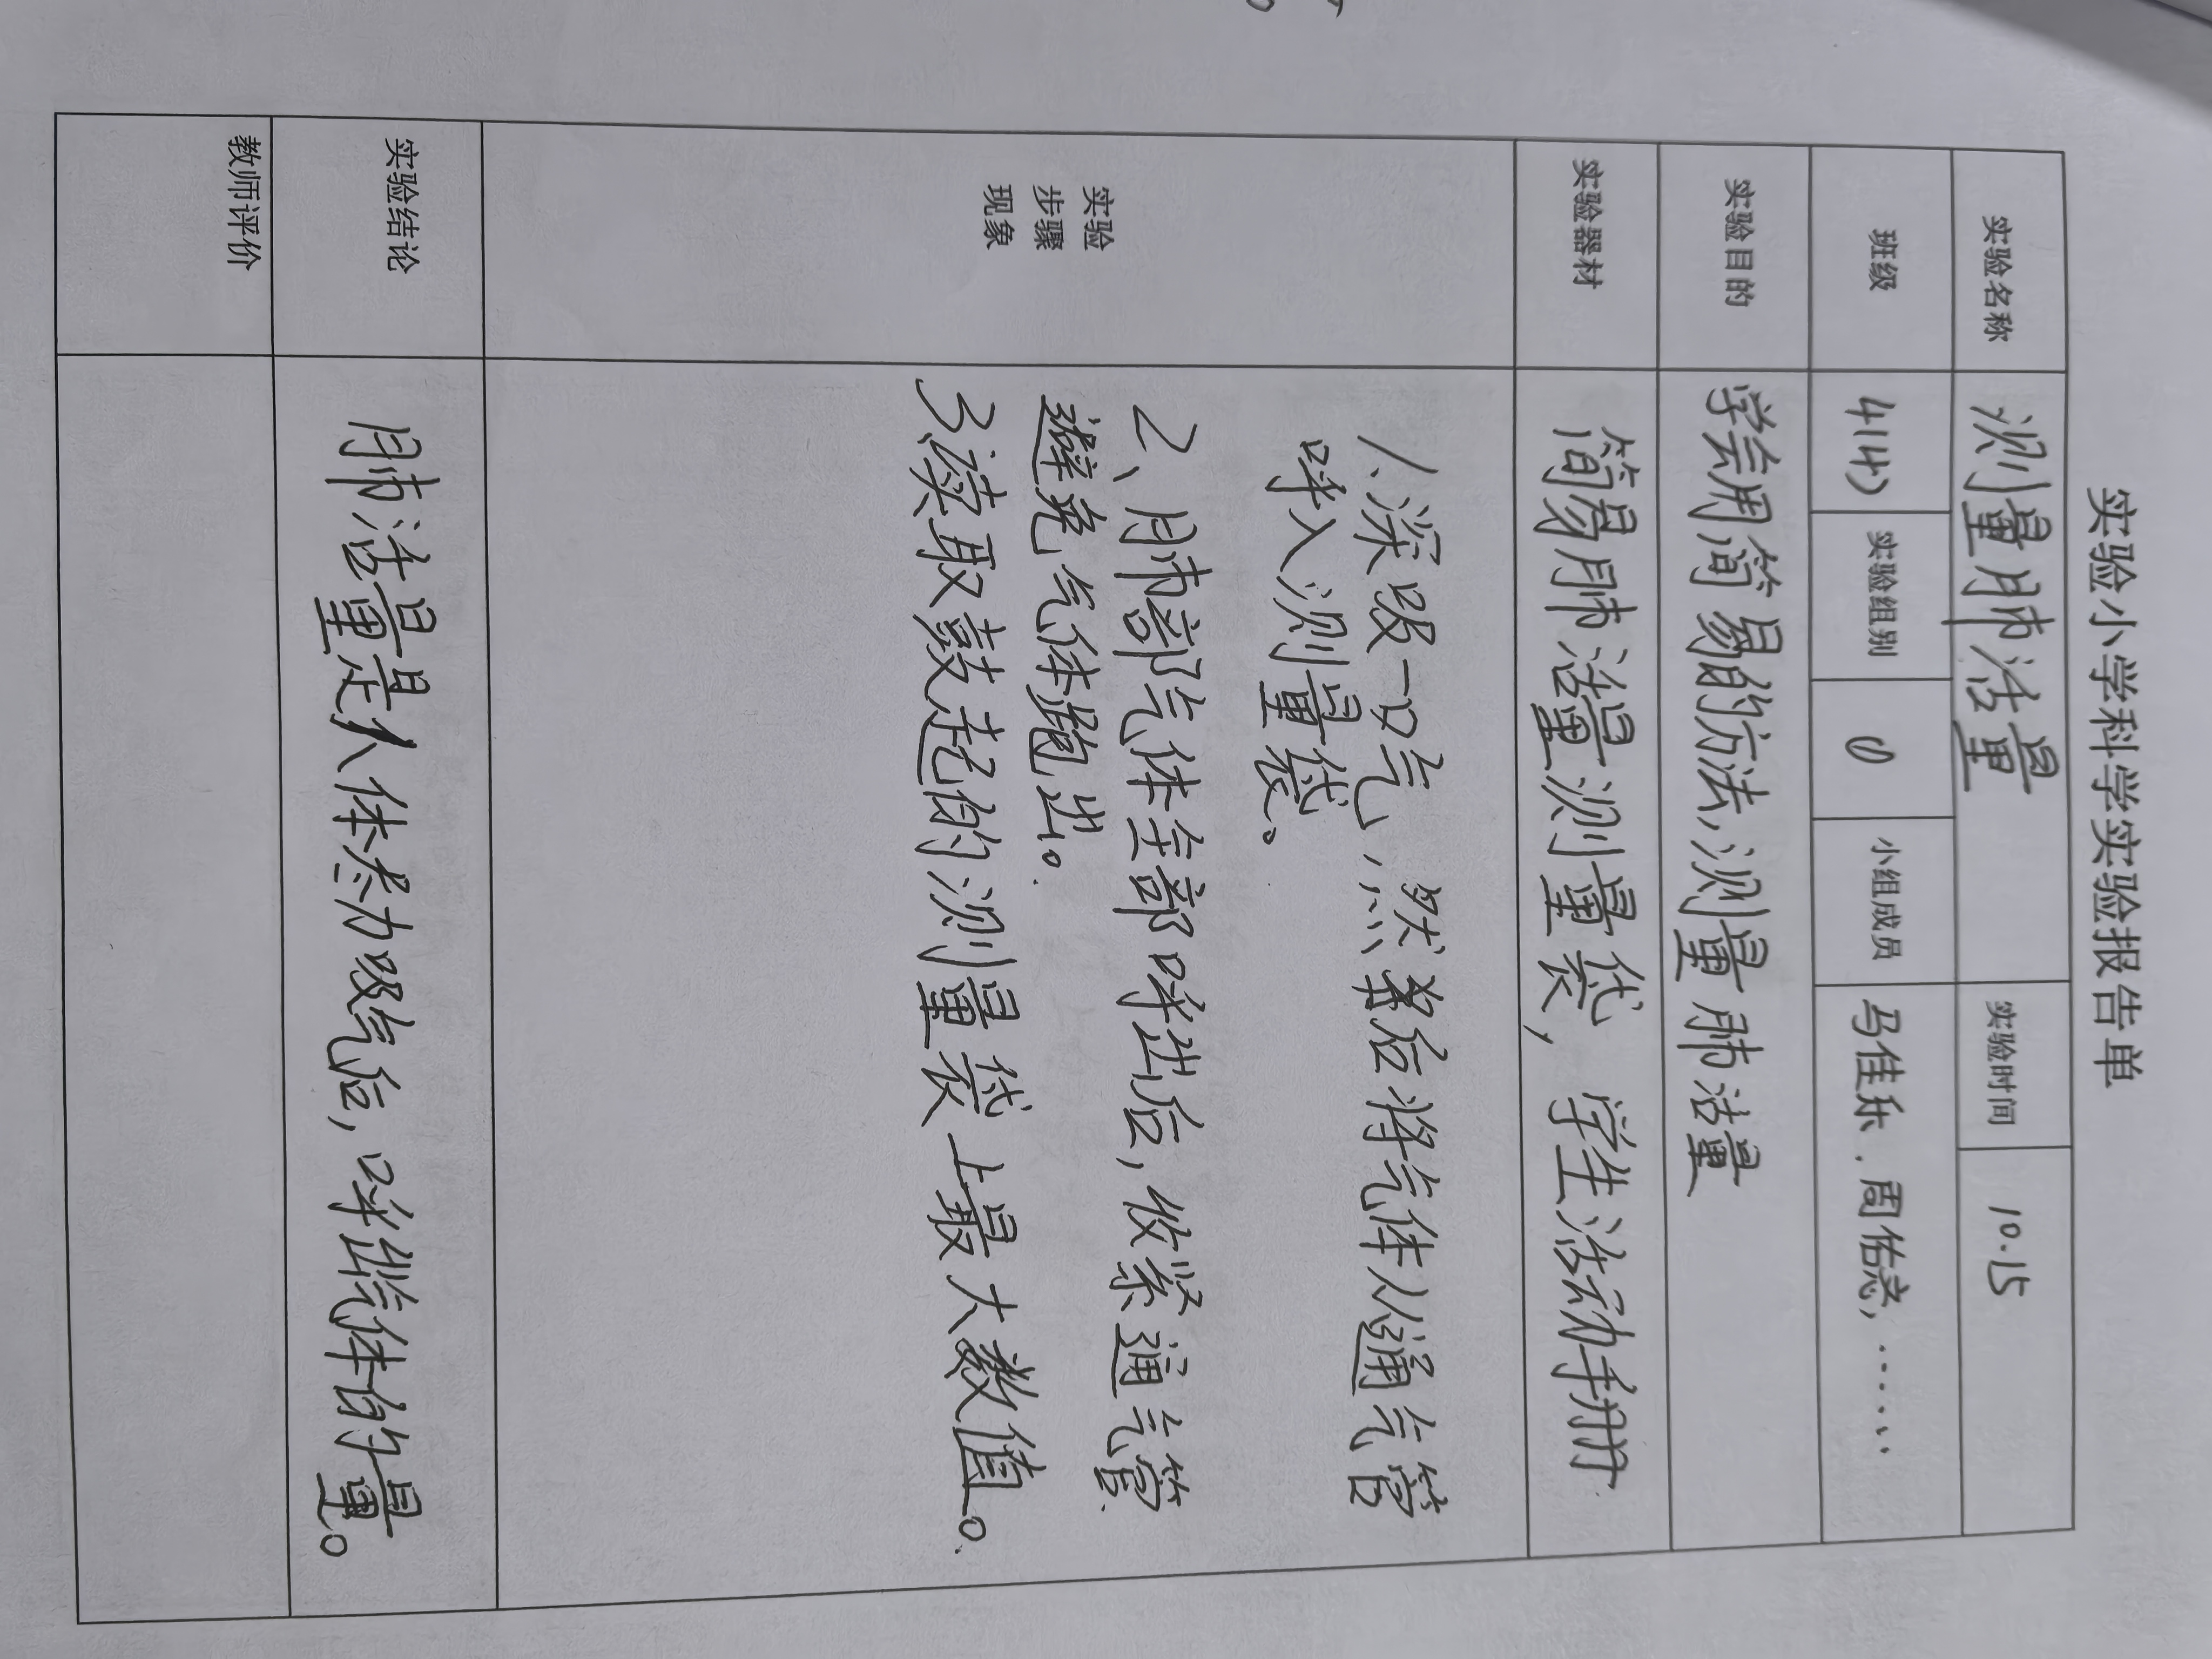 实验小学科学实验报告单
实验名称 测量肺活量 实验时间 10.15
班级 4(4) 实验组别 小组成员 马佳乐、周佑, ……
实验目的 学会用简易的方法,测量肺活量
实验器材 简易肺活量测量袋, 学生活动手册
实验
步骤
现象
1.深吸一口气,然后将气体从通气管
呼入测量袋。
2、肺部气体全部呼出后,收紧通气管
避免气体跑出。
3、读取鼓起的测量袋上最大数值。
实验结论 肺活量是人体尽力吸气后,呼出气体的量。
教师评价